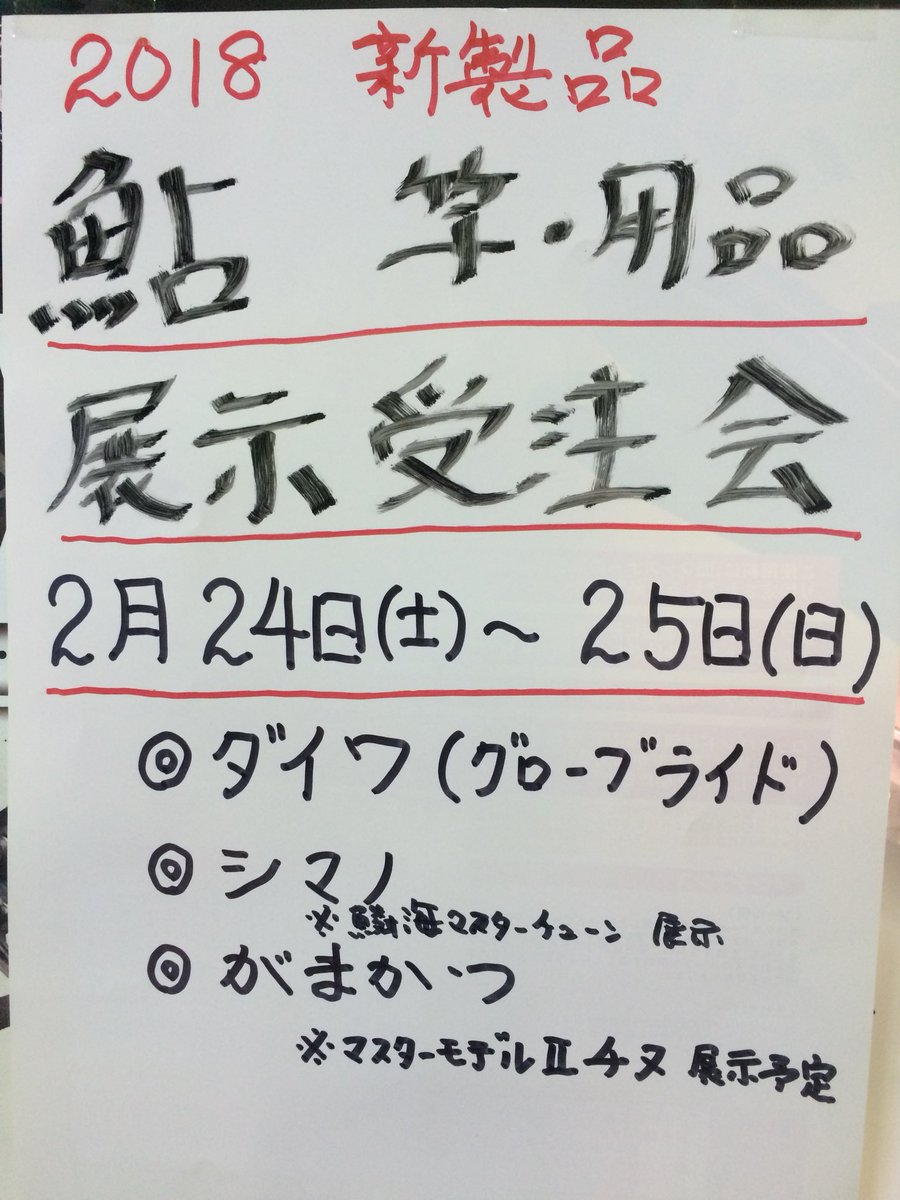 2018 新製品
鮎 竿・用品
展示受注会
2月24日(土)~25日(日)
◎ダイワ(グローブライド)
◎シマノ
※鱗海マスターチューン 展示
◎がまかつ
※マスターモデルⅡチヌ 展示予定